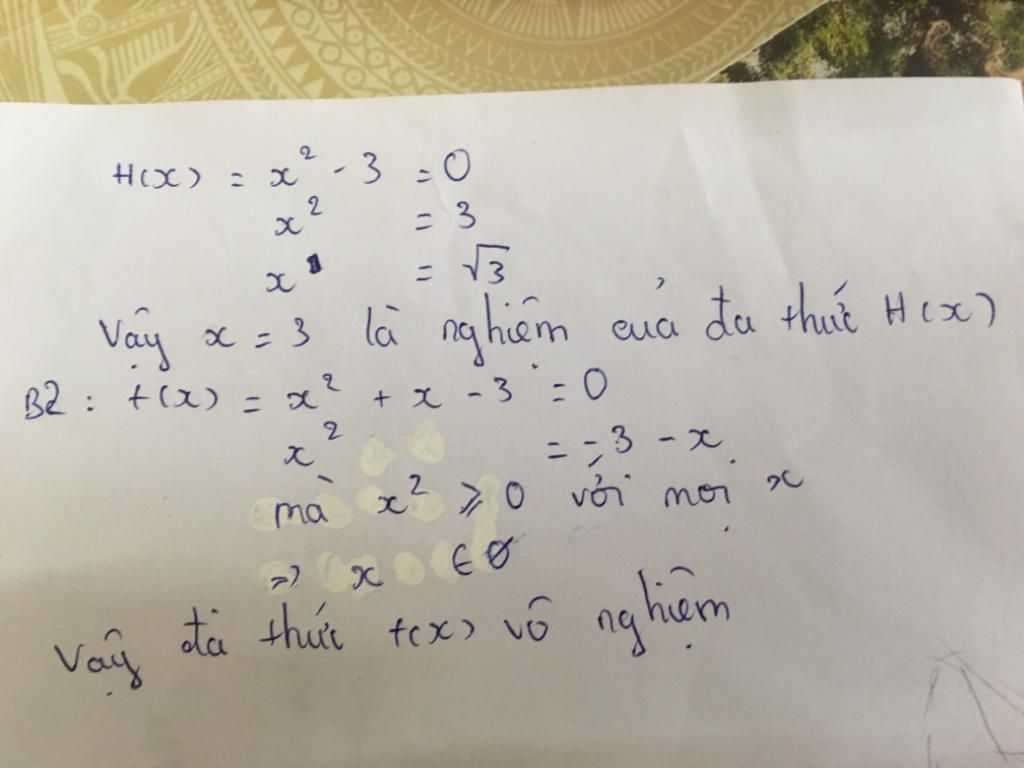 H(x) = x² - 3 = 0
x² = 3
x = √3
Vậy x = 3 là nghiệm của đa thức H(x)
B2 : f(x) = x² + x - 3 = 0
x² = -3 - x
mà x² ≥ 0 với mọi x
=> x ∈ ∅
Vậy đa thức f(x) vô nghiệm